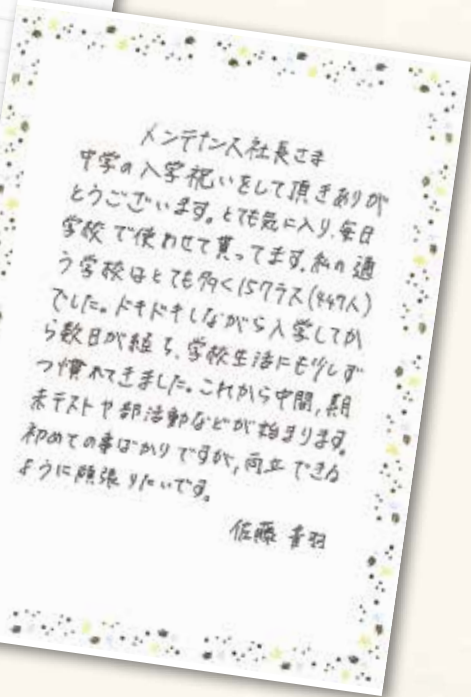 メンテナンス社長さま
中学の入学祝いをして頂きありが
とうございます。とても気に入り、毎日
学校で使わせて貰ってます。私の通
う学校はとても多く15クラス(447人)
でした。ドキドキしながら入学してか
ら数日が経ち、学校生活にも少しず
つ慣れてきました。これから中間、期
末テストや部活動などが始まります。
初めての事ばかりですが、両立できる
ように頑張りたいです。
佐藤 音羽